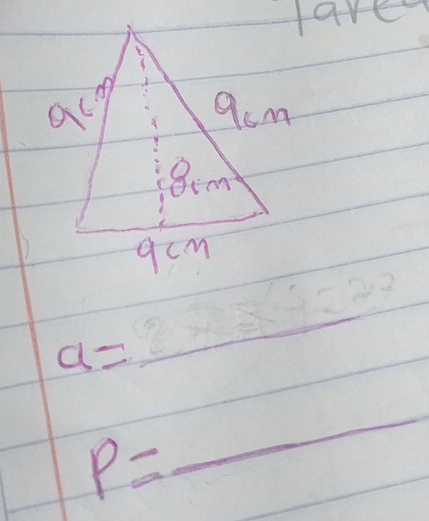 Tarea
9cm
9cm
8cm
9cm
a=
P=